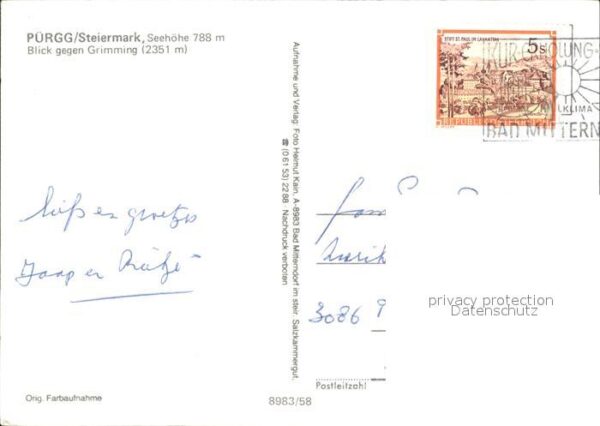 PÜRGG/Steiermark, Seehöhe 788 m
Blick gegen Grimming (2351 m)
Orig. Farbaufnahme
Aufnahme und Verlag: Foto Helmut Kain, A-8983 Bad Mitterndorf im steir. Salzkammergut,
☎ (0 61 53) 22 88 · Nachdruck verboten
8983/58
STIFT ST. PAUL IM LAVANTTAL
5 S
REPUBLIK
KUR-ERHOLUNG-
KLIMA
BAD MITTERN
groetjes
Jaap en
Fam
3086
Postleitzahl
privacy protection
Datenschutz